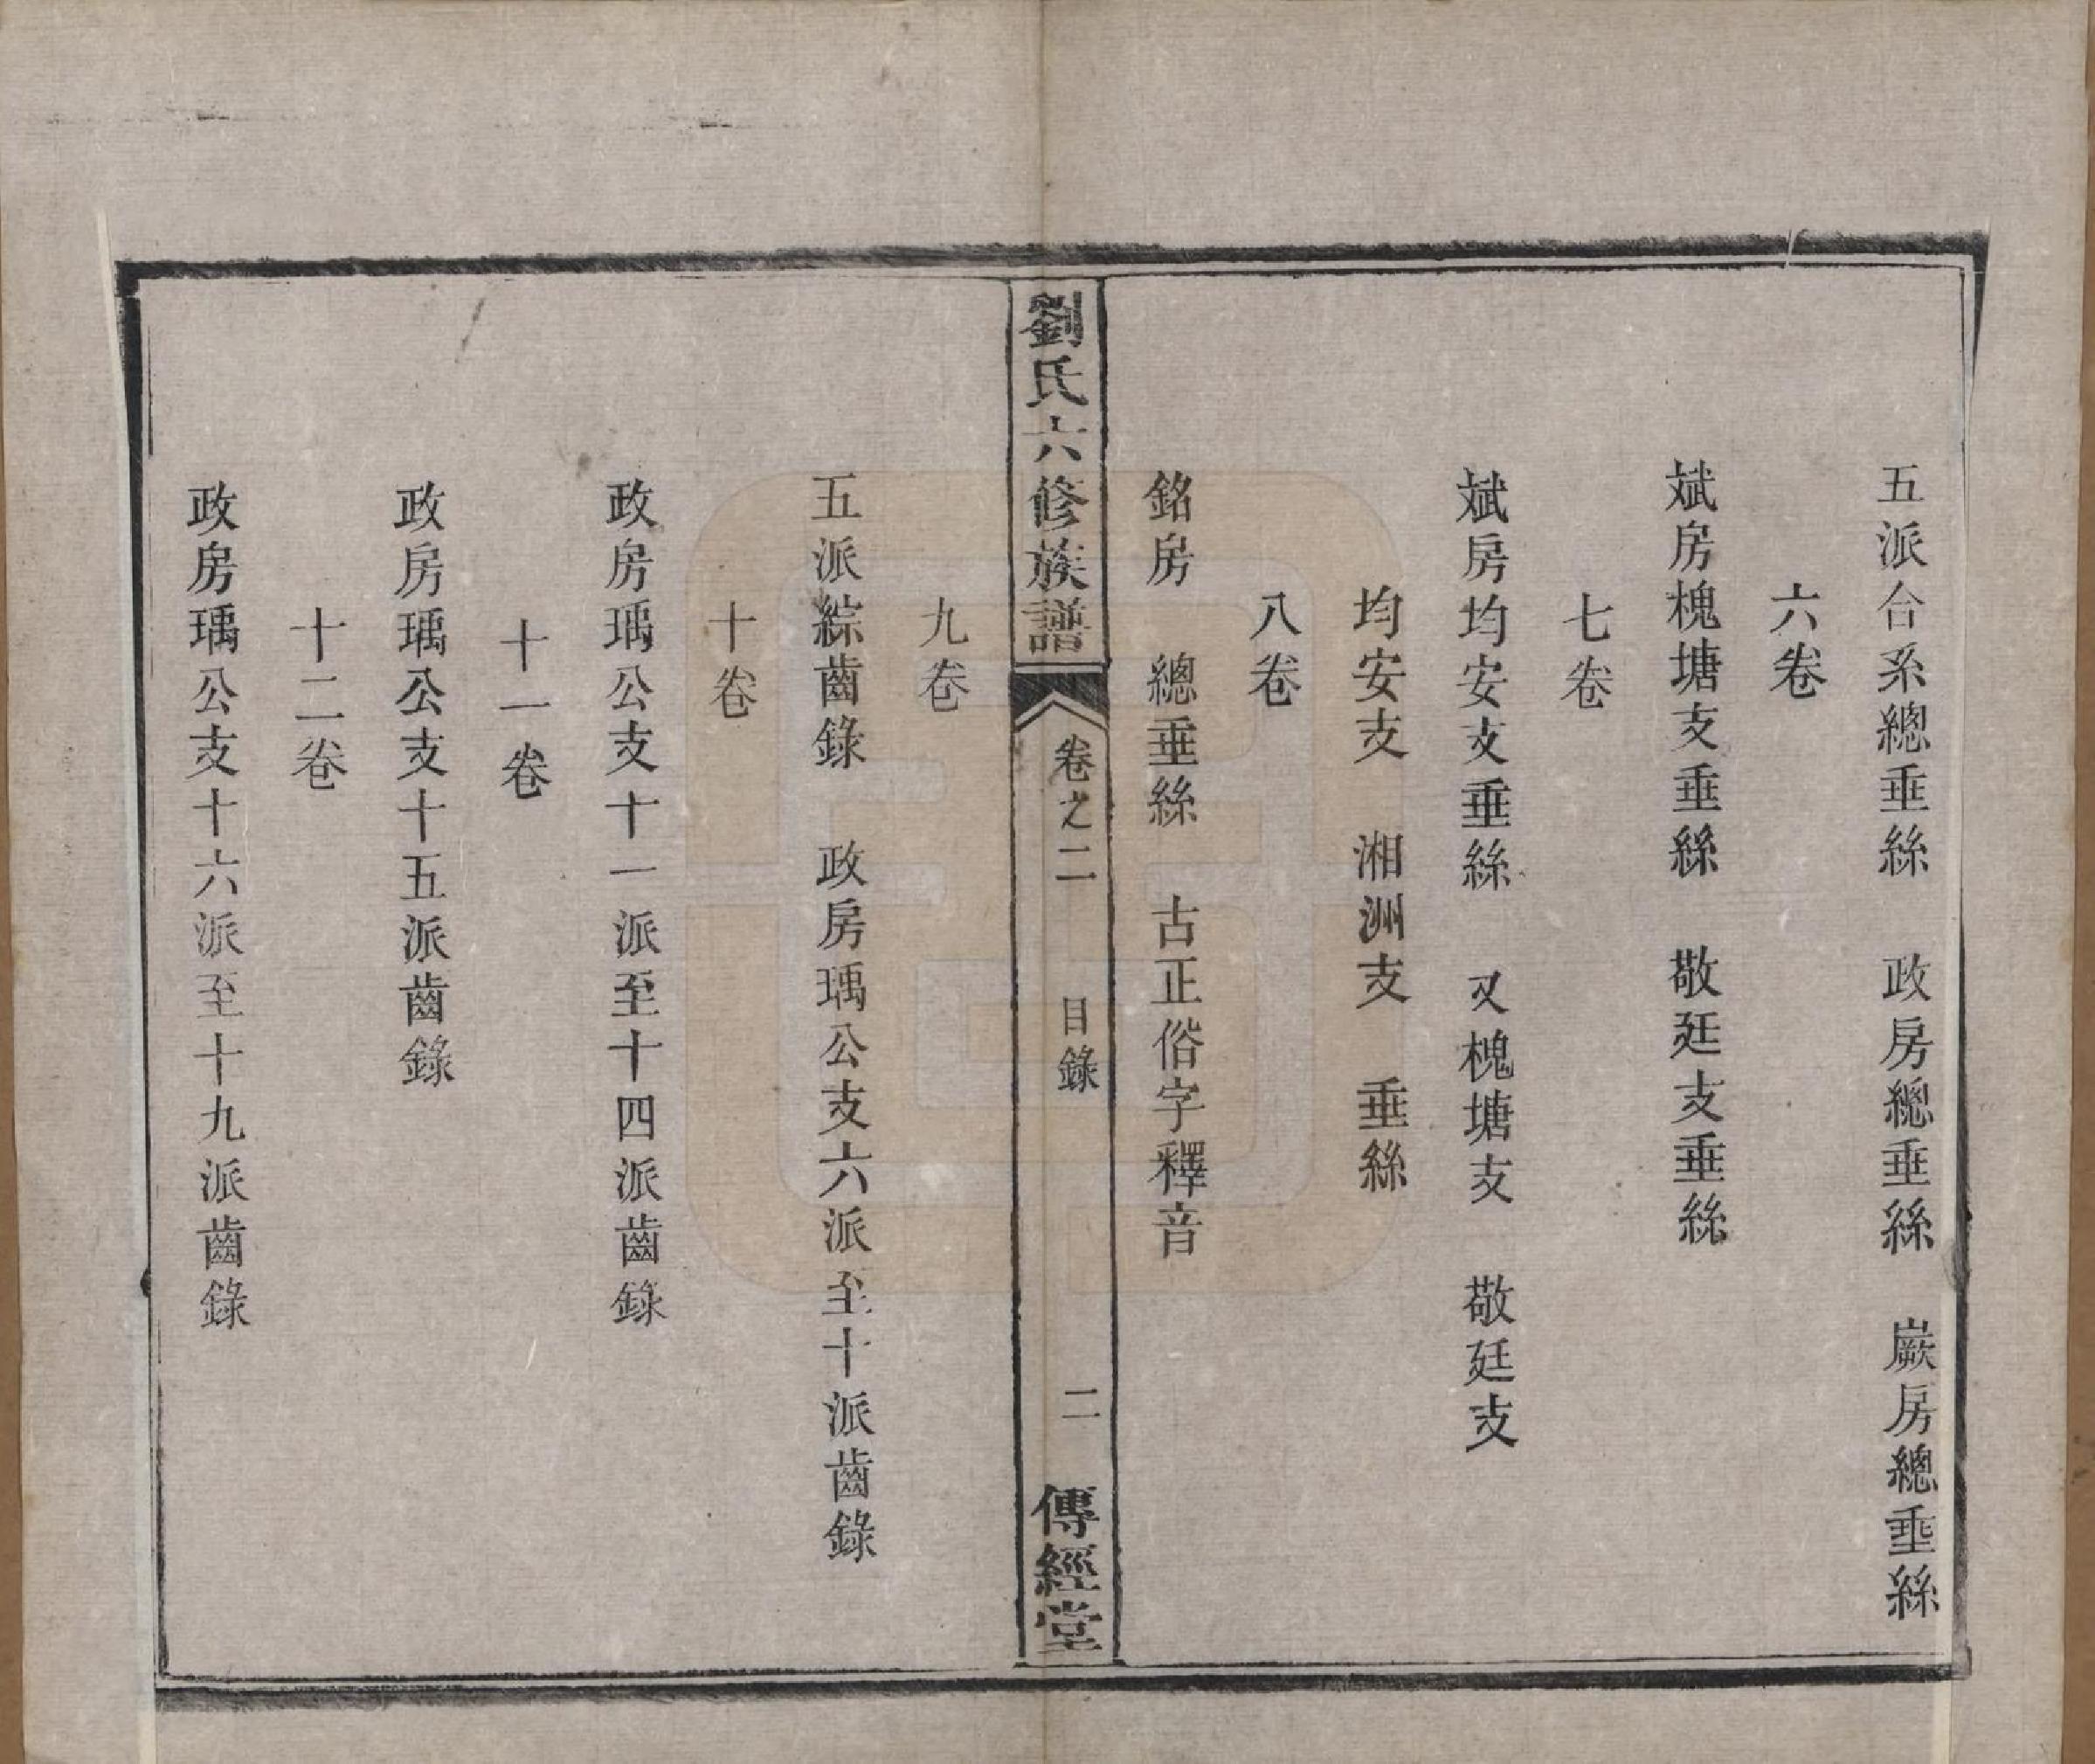 五派合系總垂絲　政房總垂絲　嚴房總垂絲
六卷
斌房槐塘支垂絲　敬廷支垂絲
七卷
斌房均安支垂絲　又槐塘支　敬廷支
均安支　湘洲支　垂絲
八卷
銘房　總垂絲　古正俗字釋音
劉氏六修族譜　卷之二　目錄　二　傳經堂
九卷
五派綜齒錄　政房瑀公支六派至十派齒錄
十卷
政房瑀公支十一派至十四派齒錄
十一卷
政房瑀公支十五派齒錄
十二卷
政房瑀公支十六派至十九派齒錄